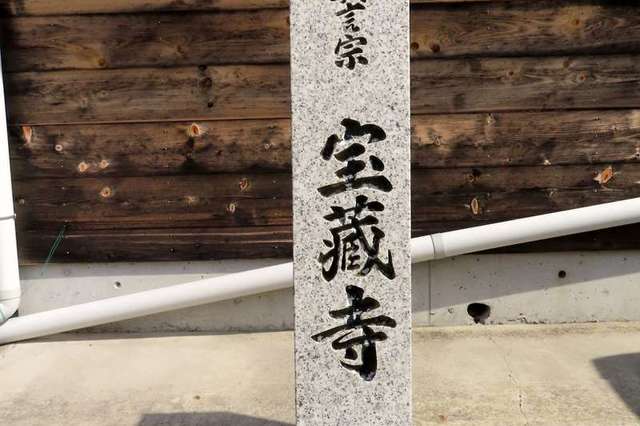 言宗
宝蔵寺